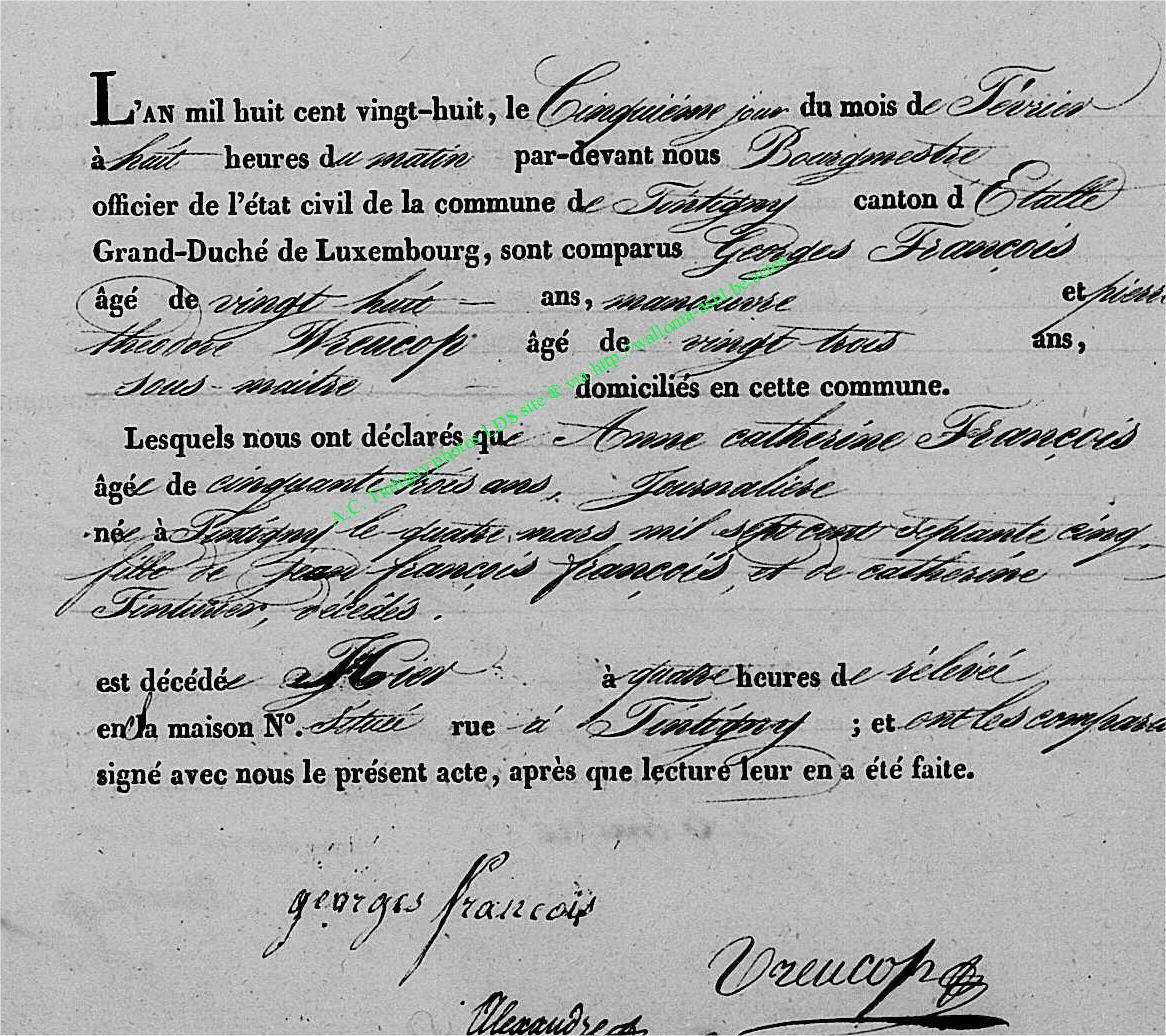 L'AN mil huit cent vingt-huit, le Cinquième jour du mois de Février
à huit heures du matin par-devant nous Bourgmestre
officier de l'état civil de la commune de Tintigny canton d'Etalle
Grand-Duché de Luxembourg, sont comparus Georges François
âgé de vingt huit ans, manœuvre et pierre
théodore Vreucop âgé de vingt trois ans,
sous-maitre domiciliés en cette commune.
Lesquels nous ont déclarés que Anne catherine François
âgée de cinquante trois ans, Journalière
née à Tintigny le quatre mars mil sept cent septante cinq,
fille de jean françois françois, et de catherine
Tinturier, décédés.
est décédée Hier à quatre heures de rélevée
en la maison N°. située rue à Tintigny ; et ont les compara
signé avec nous le présent acte, après que lecture leur en a été faite.
georges francois
Vreucop
Alexandre
A.C. Tintigny photos LDS site ® via http://wallonia-asbl.be/actes